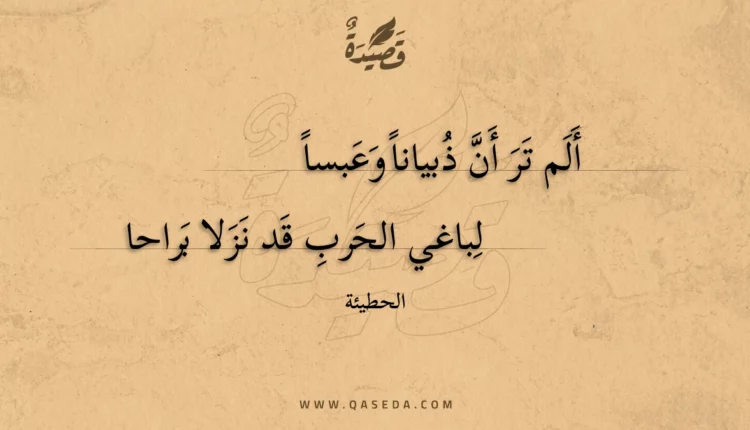 قَصِيْدَةٌ
أَلَم تَرَ أَنَّ ذُبياناً وَعَبساً
لِباغي الحَربِ قَد نَزَلا بَراحا
الحطيئة
WWW.QASEDA.COM